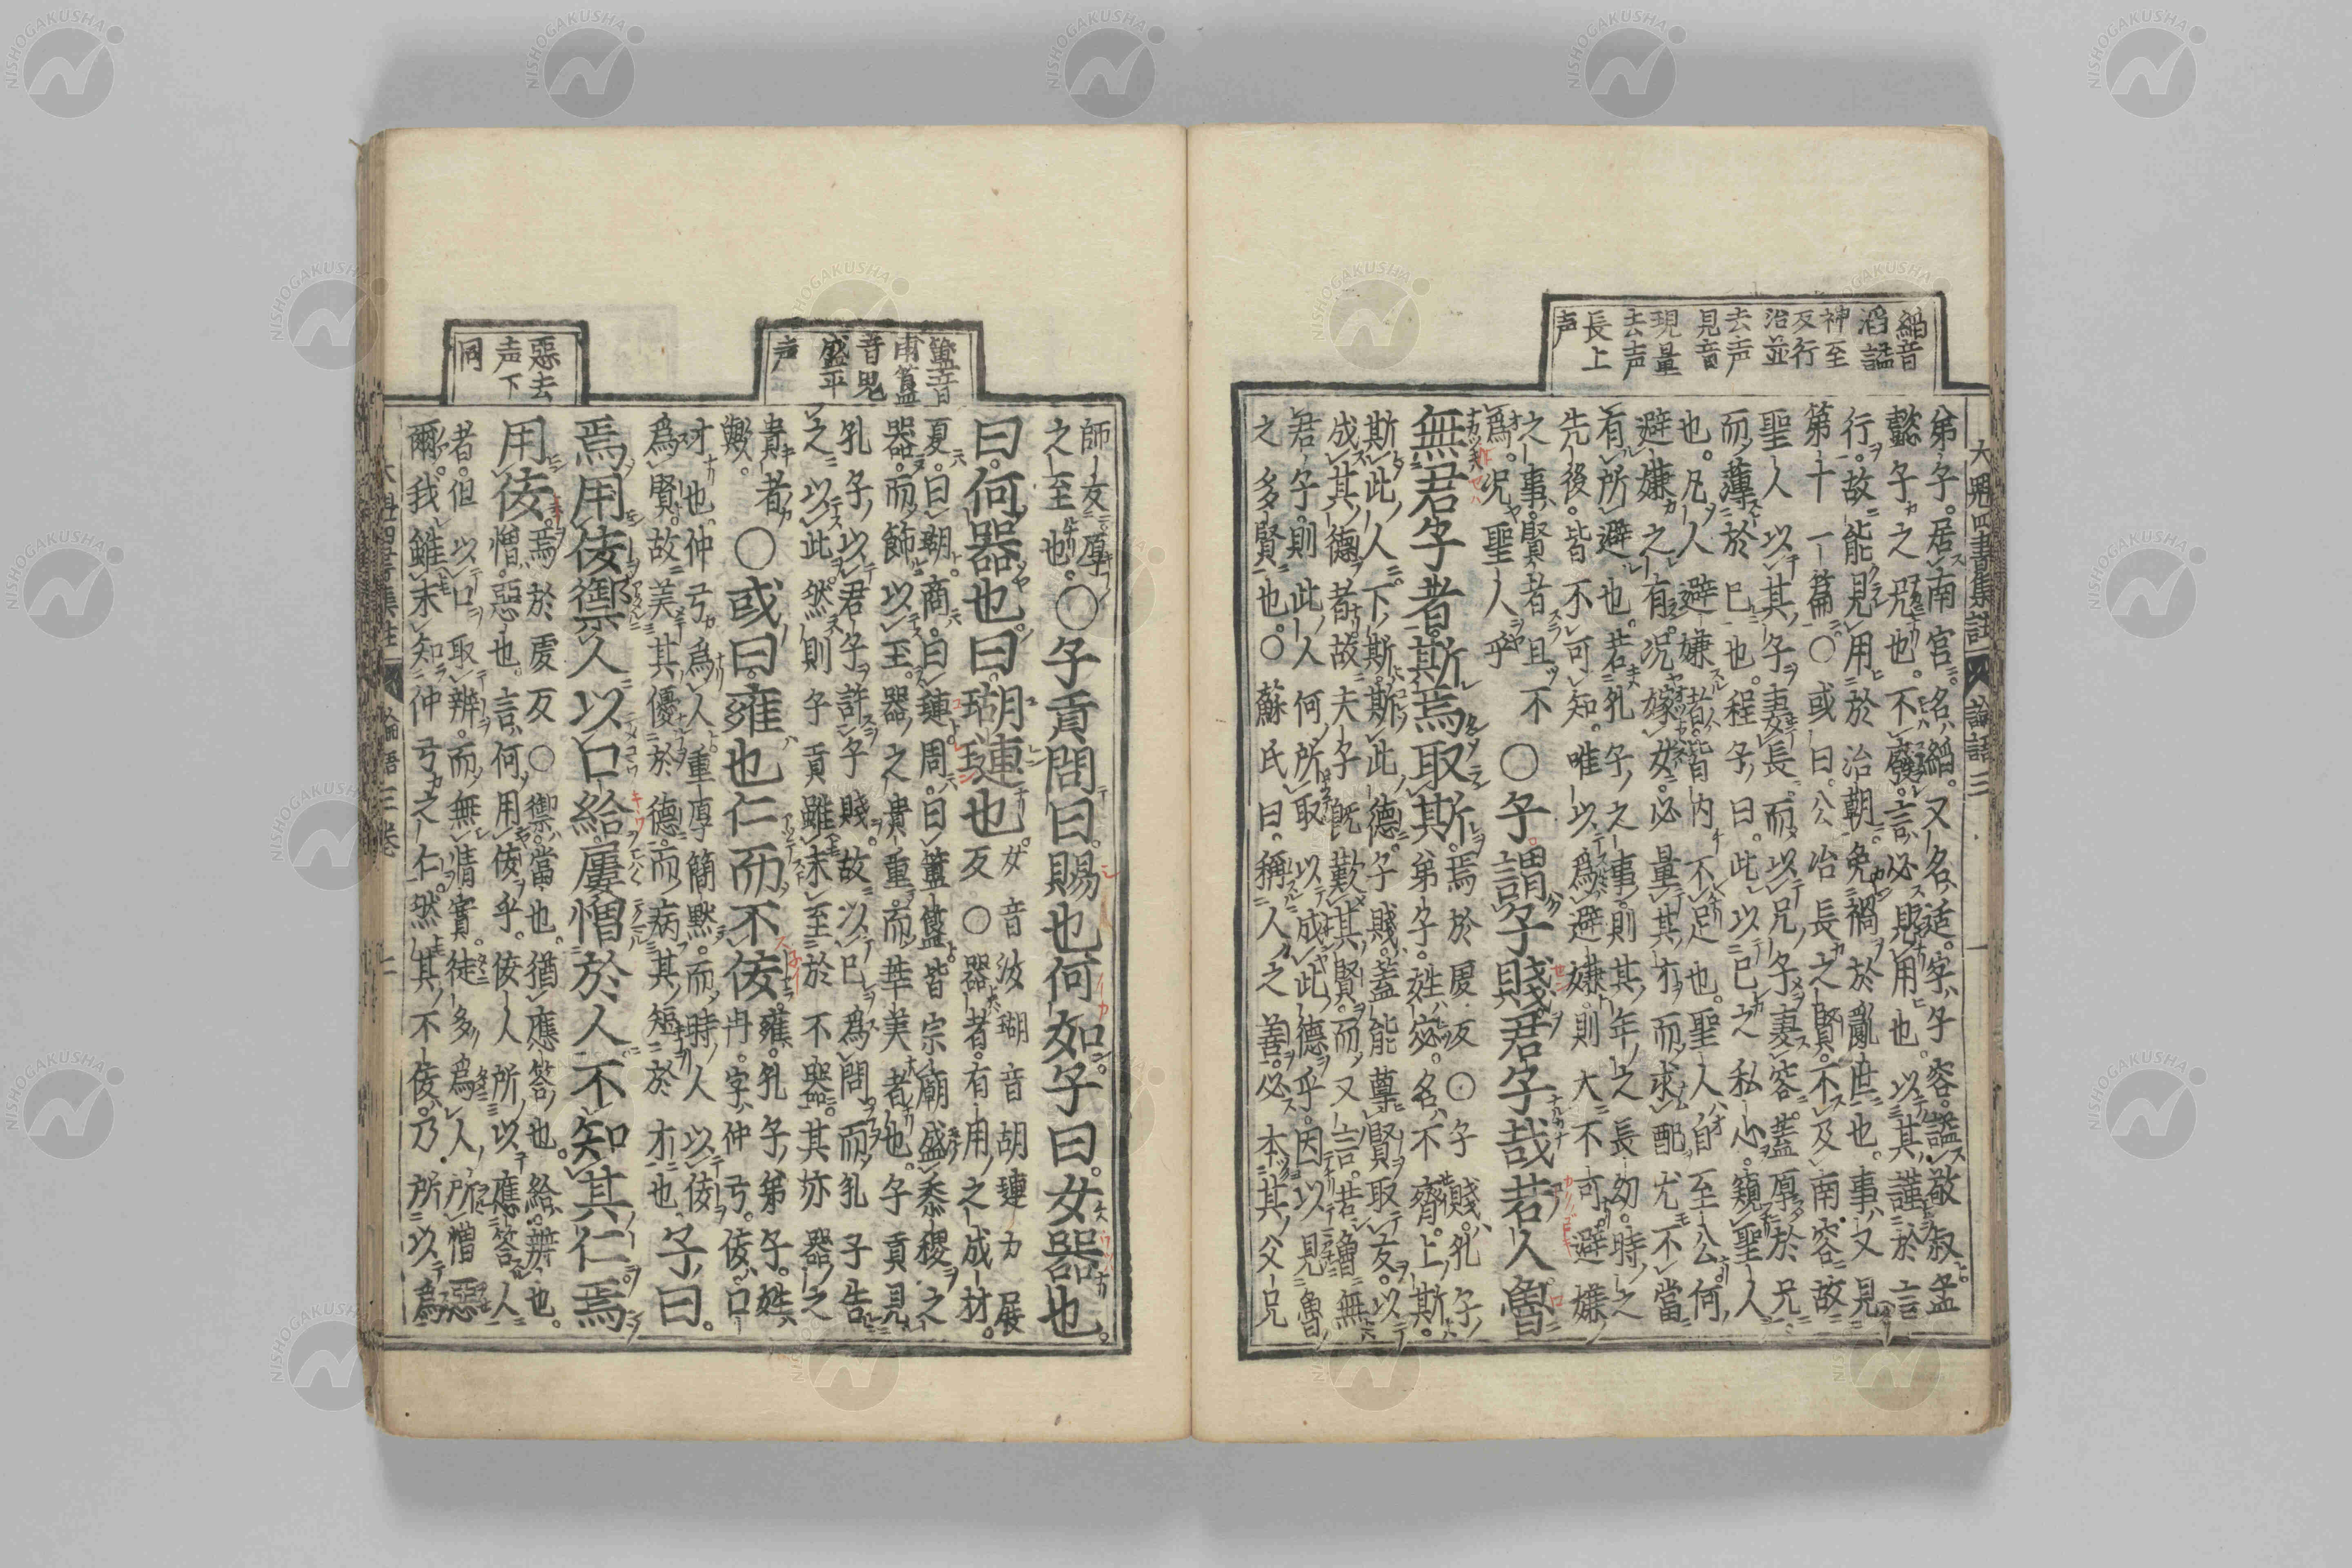 縚音
滔諡
神至
反行
治並
去声
見音
現量
去声
長上
声
大魁四書集註 論語三
弟子。居南宮。名縚。又名适。字子容。諡敬叔。孟
懿子之兄也。不廢。言必見用也。以其謹於言
行。故能見用於治朝。免禍於亂世也。事又見
第十一篇。○或曰。公冶長之賢。不及南容。故
聖人以其子妻長。而以兄子妻容。蓋厚於兄。
而薄於己也。程子曰。此以己之私心。窺聖人
也。凡人避嫌者。皆内不足也。聖人自至公。何
避嫌之有。况嫁女必量其才而求配。尤不當
有所避也。若孔子之事。則其年之長幼。時之
先後。皆不可知。唯以爲避嫌。則大不可。避嫌
之事。賢者且不
爲。况聖人乎
○子謂子賤君子哉若人魯
無君子者斯焉取斯
焉於虔反○子賤。孔子
弟子。姓宓。名不齊。上斯。
斯此人。下斯。斯此德。子賤。蓋能尊賢取友。以
成其德者。故夫子既歎其賢。而又言。若魯無
君子。則此人何所取以成此德乎。因以見魯
之多賢也。○蘇氏曰。稱人之善。必本其父兄
師友。厚
之至也。
○子貢問曰。賜也何如子曰。女器也。
曰。何器也。曰。瑚璉也。
女音汝瑚音胡璉力展
反○器者。有用之成材。
夏曰瑚。商曰璉。周曰簠簋。皆宗廟盛黍稷之
器。而飾以玉。器之貴重。而華美者也。子貢見
孔子以君子許子賤。故以己爲問。而孔子告
之以此。然則子貢雖未至於不器。其亦器之
貴者
歟。
○或曰。雍也仁而不佞。
雍。孔子弟子。姓
冉。字仲弓。佞。口
才也。仲弓爲人。重厚簡默。而時人以佞
爲賢。故美其優於德。而病其短於才也。
子曰。
焉用佞禦人以口給屢憎於人不知其仁焉
用佞。
焉於虔反○禦。當也。猶應答也。給。辨也。
憎。惡也。言何用佞乎。佞人所以應答人
者。但以口取辨。而無情實。徒多爲人所憎惡
爾。我雖未知仲弓之仁。然其不佞。乃所以爲
簠音
甫簋
音鬼
盛平
声
惡去
声下
同